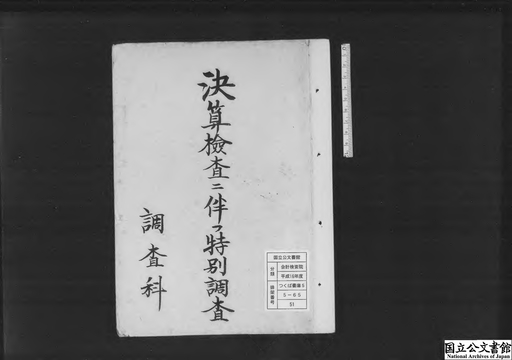 決算檢査ニ伴フ特別調査
調査科
国立公文書館
分類
会計検査院
平成16年度
排架番号
つくば書庫6
5-65
51
国立公文書館
National Archives of Japan